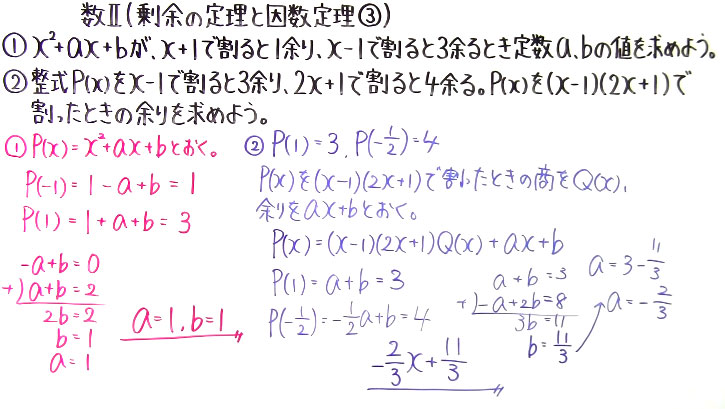 数Ⅱ(剰余の定理と因数定理③)
① x²+ax+bが、x+1で割ると1余り、x-1で割ると3余るとき定数a,bの値を求めよう。
② 整式P(x)をx-1で割ると3余り、2x+1で割ると4余る。P(x)を(x-1)(2x+1)で
割ったときの余りを求めよう。
① P(x)=x²+ax+bとおく。
P(-1)=1-a+b=1
P(1)=1+a+b=3
-a+b=0
+)a+b=2
2b=2
b=1
a=1
a=1,b=1
② P(1)=3, P(-1/2)=4
P(x)を(x-1)(2x+1)で割ったときの商をQ(x),
余りをax+bとおく。
P(x)=(x-1)(2x+1)Q(x)+ax+b
P(1)=a+b=3
P(-1/2)=-1/2a+b=4
a+b=3
+)-a+2b=8
3b=11
b=11/3
a=3-11/3
a=-2/3
-2/3x+11/3